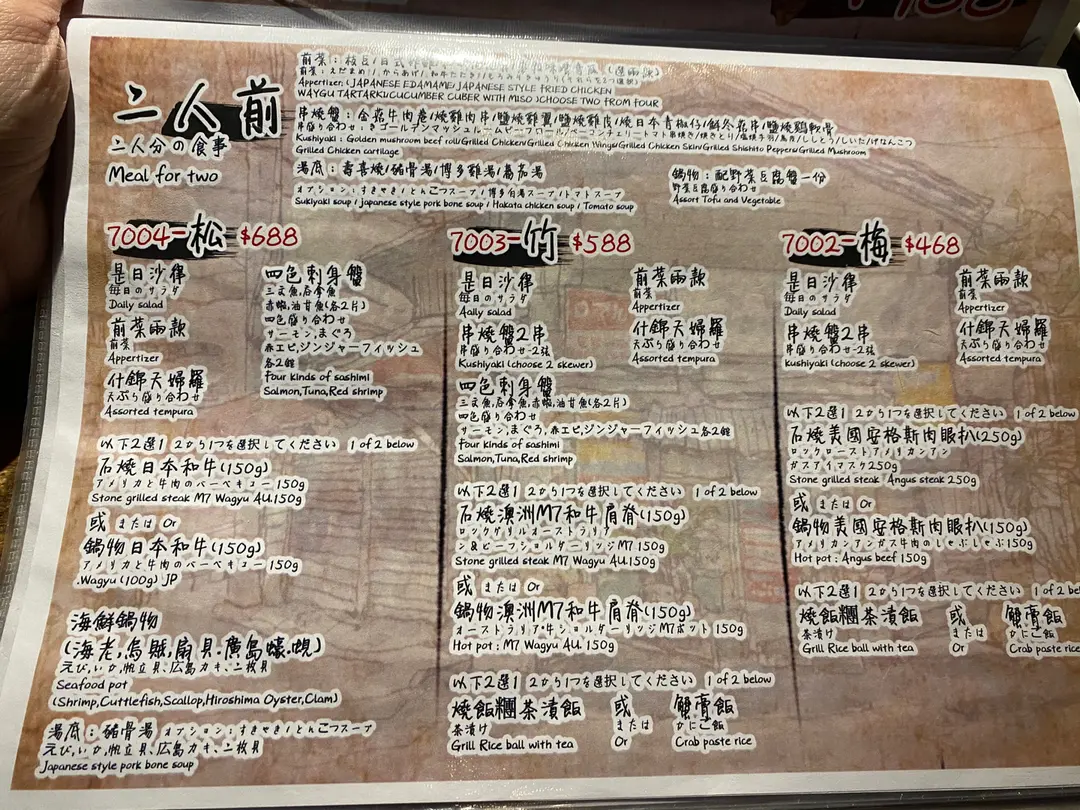 二人前
二人分の食事
Meal for two
前菜：枝豆/日式炸雞 (選兩款)
Appertizer: ( JAPANESE EDAMAME/ JAPANESE STYLE FRIED CHICKEN
WAYGU TARTARKU/CUCUMBER CUBER WITH MISO )CHOOSE TWO FROM FOUR
串燒盤：金菇牛肉卷/燒雞肉串/鹽燒雞翼/鹽燒雞皮/燒日本青椒仔/鮮冬菇串/鹽燒鷄軟骨
Kushiyaki : Golden mushroom beef roll/Grilled Chicken/Grilled Chicken Wings/Grilled Chicken Skin/Grilled Shishito Peppers/Grilled Mushroom
Grilled Chicken cartilage
湯底：壽喜燒/豬骨湯/博多雞湯/蕃茄湯
オプション：すきやき/とんこつスープ/博多白湯スープ/トマトスープ
Sukiyaki soup / japanese style pork bone soup / Hakata chicken soup / Tomato soup
鍋物：配野菜豆腐盤一份
野菜豆腐盛り合わせ
Assort Tofu and Vegetable
7004-松 $688
是日沙律
毎日のサラダ
Daily salad
前菜兩款
前菜
Appertizer
什錦天婦羅
天ぷら盛り合わせ
Assorted tempura
四色刺身盤
三文魚,吞拿魚
赤蝦,油甘魚(各2片)
四色盛り合わせ
サーモン,まぐろ
赤エビ,ジンジャーフィッシュ
各2館
Four kinds of sashimi
Salmon,Tuna,Red shrimp
以下2選1 2から1つを選択してください 1 of 2 below
石燒日本和牛(150g)
アメリカと牛肉のバーベキュー 150g
Stone grilled steak M7 Wagyu AU.150g
或 または Or
鍋物日本和牛(150g)
アメリカと牛肉のバーベキュー 150g
.Wagyu (100g) JP
海鮮鍋物
(海老,烏賊,扇貝,廣島蠔,蜆)
えび,いか,帆立貝,広島カキ,二枚貝
Seafood pot
(Shrimp,Cuttlefish,Scallop,Hiroshima Oyster,Clam)
湯底：豬骨湯 オプション：すきやき/とんこつスープ
えび,いか,帆立貝,広島カキ,二枚貝
Japanese style pork bone soup
7003-竹 $588
是日沙律
毎日のサラダ
Aally salad
串燒盤2串
串盛り合わせ-2張
Kushiyaki (choose 2 skewer)
前菜兩款
前菜
Appertizer
什錦天婦羅
天ぷら盛り合わせ
Assorted tempura
四色刺身盤
三文魚,吞拿魚,赤蝦,油甘魚(各2片)
四色盛り合わせ
サーモン,まぐろ,赤エビ,ジンジャーフィッシュ各2館
Four kinds of sashimi
Salmon,Tuna,Red shrimp
以下2選1 2から1つを選択してください 1 of 2 below
石燒澳洲M7和牛肩脊(150g)
ロックグリルオーストラリア
ン&ビーフショルダーリッジM7 150g
Stone grilled steak M7 Wagyu AU.150g
或 または Or
鍋物澳洲M7和牛肩脊(150g)
オーストラリア牛ショルダーリッジM7ポット 150g
Hot pot : M7 Wagyu AU. 150g
以下2選1 2から1つを選択してください 1 of 2 below
燒飯糰茶漬飯 或 蟹膏飯
茶漬け または かにこ飯
Grill Rice ball with tea Or Crab paste rice
7002-梅 $468
是日沙律
毎日のサラダ
Daily salad
串燒盤2串
串盛り合わせ-2張
Kushiyaki (choose 2 skewer)
前菜兩款
前菜
Appertizer
什錦天婦羅
天ぷら盛り合わせ
Assorted tempura
以下2選1 2から1つを選択してください 1 of 2 below
石燒美國安格斯肉眼扒(250g)
ロックローストアメリカンアン
ガスアイマスク250g
Stone grilled steak : Angus steak 250g
或 または Or
鍋物美國安格斯肉眼扒(150g)
アメリカンアンガス牛肉のしゃぶしゃぶ150g
Hot pot : Angus beef 150g
以下2選1 2から1つを選択してください 1 of 2 be
燒飯糰茶漬飯 或 蟹膏飯
茶漬け または かにこ飯
Grill Rice ball with tea Or Crab paste rice